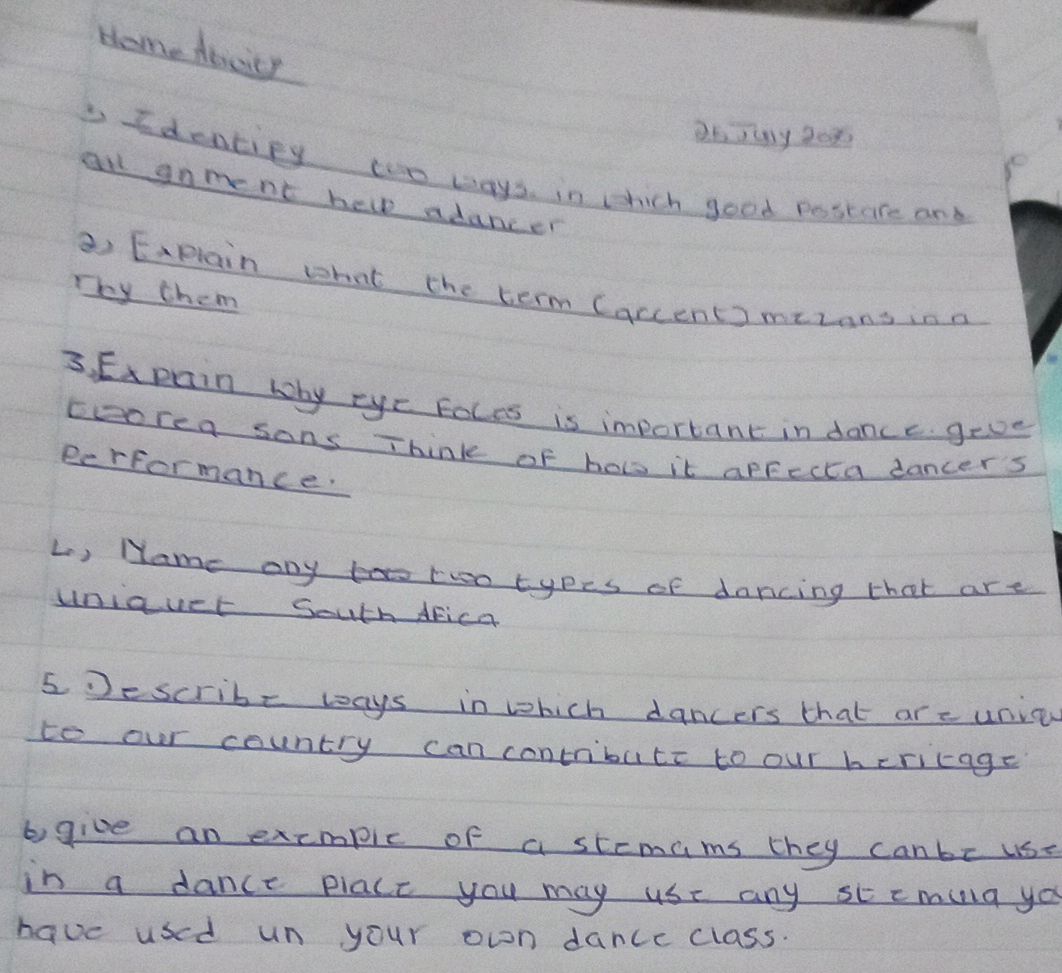 Home Activity
25 July
1) Identify two ways in which good postare and
all gnment help adancer
2) Explain what the term (accent) mezans in a
Thy them
3. Explain why eye Focus is important in dance. geve
two rea sons Think of how it affects a dancer's
performance.
4, Name any two two types of dancing that are
uniquet South Africa
5 Describe ways in which dancers that are uniqu
to our country can contribute to our heritage
6) give an exemple of a stemams they canbe use
in a dance place you may use any stemula yo
have used un your own dance class.